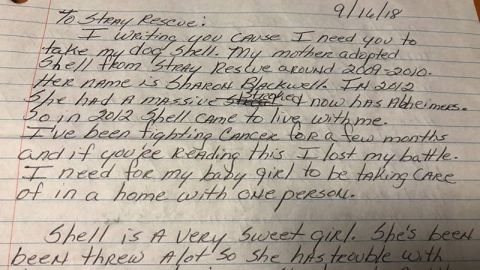 9/16/18
To Stray Rescue:
I writing you cause I need you to
take my dog Shell. My mother adopted
Shell from Stray Rescue around 2009-2010.
Her name is Sharon Blackwell. In 2012
She had a massive stroke &  now has Alzheimers.
So in 2012 Shell came to live with me.
I've been fighting cancer for a few months
and if you're reading this I lost my battle.
I need for my baby girl to be taking care
of in a home with one person.
Shell is a very sweet girl. She's been
been threw alot so she has trouble with